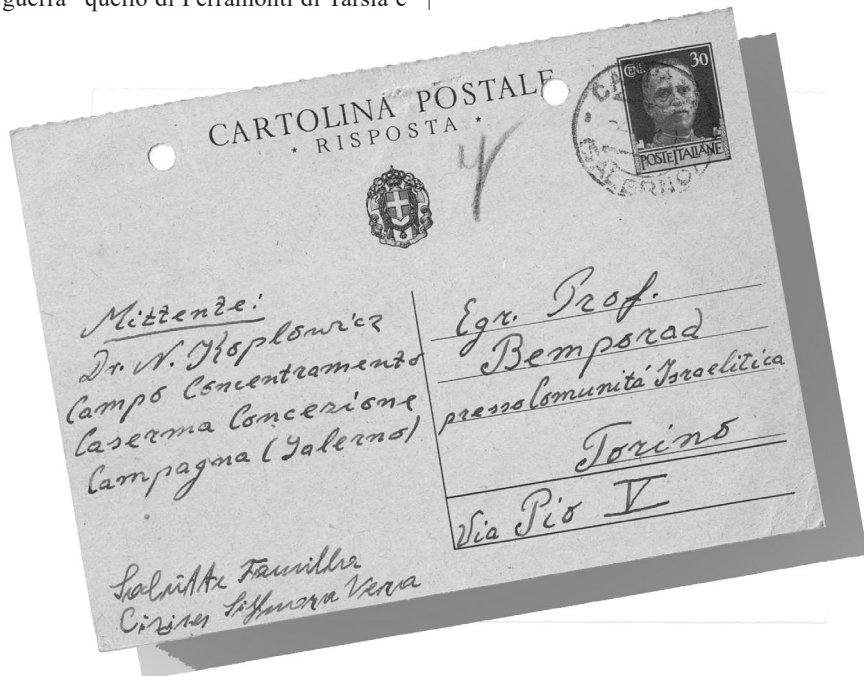 guerra" quello di Ferramonti di Tarsia e
CARTOLINA POSTALE
* RISPOSTA *
CEN. 30
POSTE ITALIANE
SALERNO
Mittente:
Dr. N. Koplowicz
Campo Concentramento
Caserma Concezione
Campagna (Salerno)
Egr. Prof.
Bemporad
presso Comunitá Israelitica
Torino
Via Pio V
Famillia
Vera